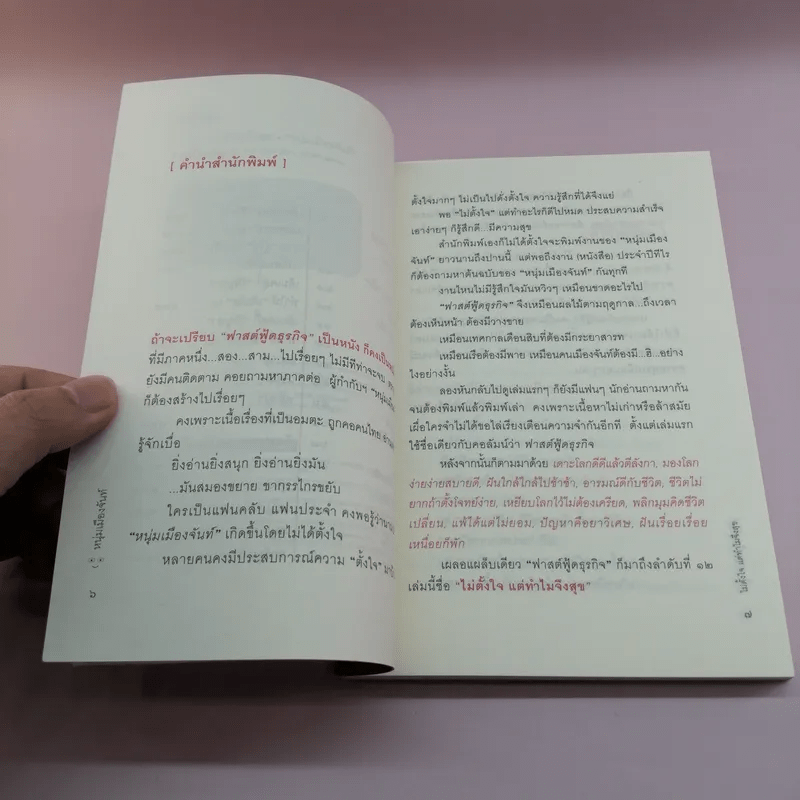 [ คำนำสำนักพิมพ์ ]
ถ้าจะเปรียบ "ฟาสต์ฟู้ดธุรกิจ" เป็นหนัง ก็คงเป็น
ที่มีภาคหนึ่ง...สอง...สาม...ไปเรื่อยๆ ไม่มีทีท่าจะจบ
ยังมีคนติดตาม คอยถามหาภาคต่อ ผู้กำกับฯ "หนุ่มเมือง
ก็ต้องสร้างไปเรื่อยๆ
คงเพราะเนื้อเรื่องที่เป็นอมตะ ถูกคอคนไทย อ่าน
รู้จักเบื่อ
ยิ่งอ่านยิ่งสนุก ยิ่งอ่านยิ่งมัน
...มันสมองขยาย ขากรรไกรขยับ
ใครเป็นแฟนคลับ แฟนประจำ คงพอรู้ว่า
"หนุ่มเมืองจันท์" เกิดขึ้นโดยไม่ได้ตั้งใจ
หลายคนคงมีประสบการณ์ความ "ตั้งใจ"
๖
หนุ่มเมืองจันท์
ตั้งใจมากๆ ไม่เป็นไปดั่งตั้งใจ ความรู้สึกที่ได้จึงแย่
พอ "ไม่ตั้งใจ" แต่ทำอะไรก็ดีไปหมด ประสบความสำเร็จ
เอาง่ายๆ ก็รู้สึกดี...มีความสุข
สำนักพิมพ์เองก็ไม่ได้ตั้งใจจะพิมพ์งานของ "หนุ่มเมือง
จันท์" ยาวนานถึงปานนี้ แต่พอถึงงาน (หนังสือ) ประจำปีทีไร
ก็ต้องถามหาต้นฉบับของ "หนุ่มเมืองจันท์" กันทุกที
งานไหนไม่มีรู้สึกใจมันหวิวๆ เหมือนขาดอะไรไป
"ฟาสต์ฟู้ดธุรกิจ" จึงเหมือนผลไม้ตามฤดูกาล...ถึงเวลา
ต้องเห็นหน้า ต้องมีวางขาย
เหมือนเทศกาลเดือนสิบที่ต้องมีกระยาสารท
เหมือนเรือต้องมีพาย เหมือนคนเมืองจันท์ต้องมี...ฮิ...อย่าง
ไงอย่างงั้น
ลองหันกลับไปดูเล่มแรกๆ ก็ยังมีแฟนๆ นักอ่านถามหากัน
จนต้องพิมพ์แล้วพิมพ์เล่า คงเพราะเนื้อหาไม่เก่าหรือล้าสมัย
เผื่อใครจำไม่ได้ขอไล่เรียงเตือนความจำกันอีกที ตั้งแต่เล่มแรก
ใช้ชื่อเดียวกับคอลัมน์ว่า ฟาสต์ฟู้ดธุรกิจ
หลังจากนั้นก็ตามมาด้วย เตาะโลกดีดีแล้วตีลังกา, มองโลก
ง่ายง่ายสบายดี, ฝันใกล้ใกล้ไปช้าช้า, อารมณ์ดีกับชีวิต, ชีวิตไม่
ยากถ้าตั้งโจทย์ง่าย, เหยียบโลกไว้ไม่ต้องเครียด, พลิกมุมคิดชีวิต
เปลี่ยน, แพ้ได้แต่ไม่ยอม, ปัญหาคือยาวิเศษ, ฝันเรื่อยเรื่อย
เหนื่อยก็พัก
เผลอแผล็บเดียว "ฟาสต์ฟู้ดธุรกิจ" ก็มาถึงลำดับที่ ๑๒
เล่มนี้ชื่อ "ไม่ตั้งใจ แต่ทำไมจึงสุข"
๗
ไม่ตั้งใจ แต่ทำไมจึงสุข